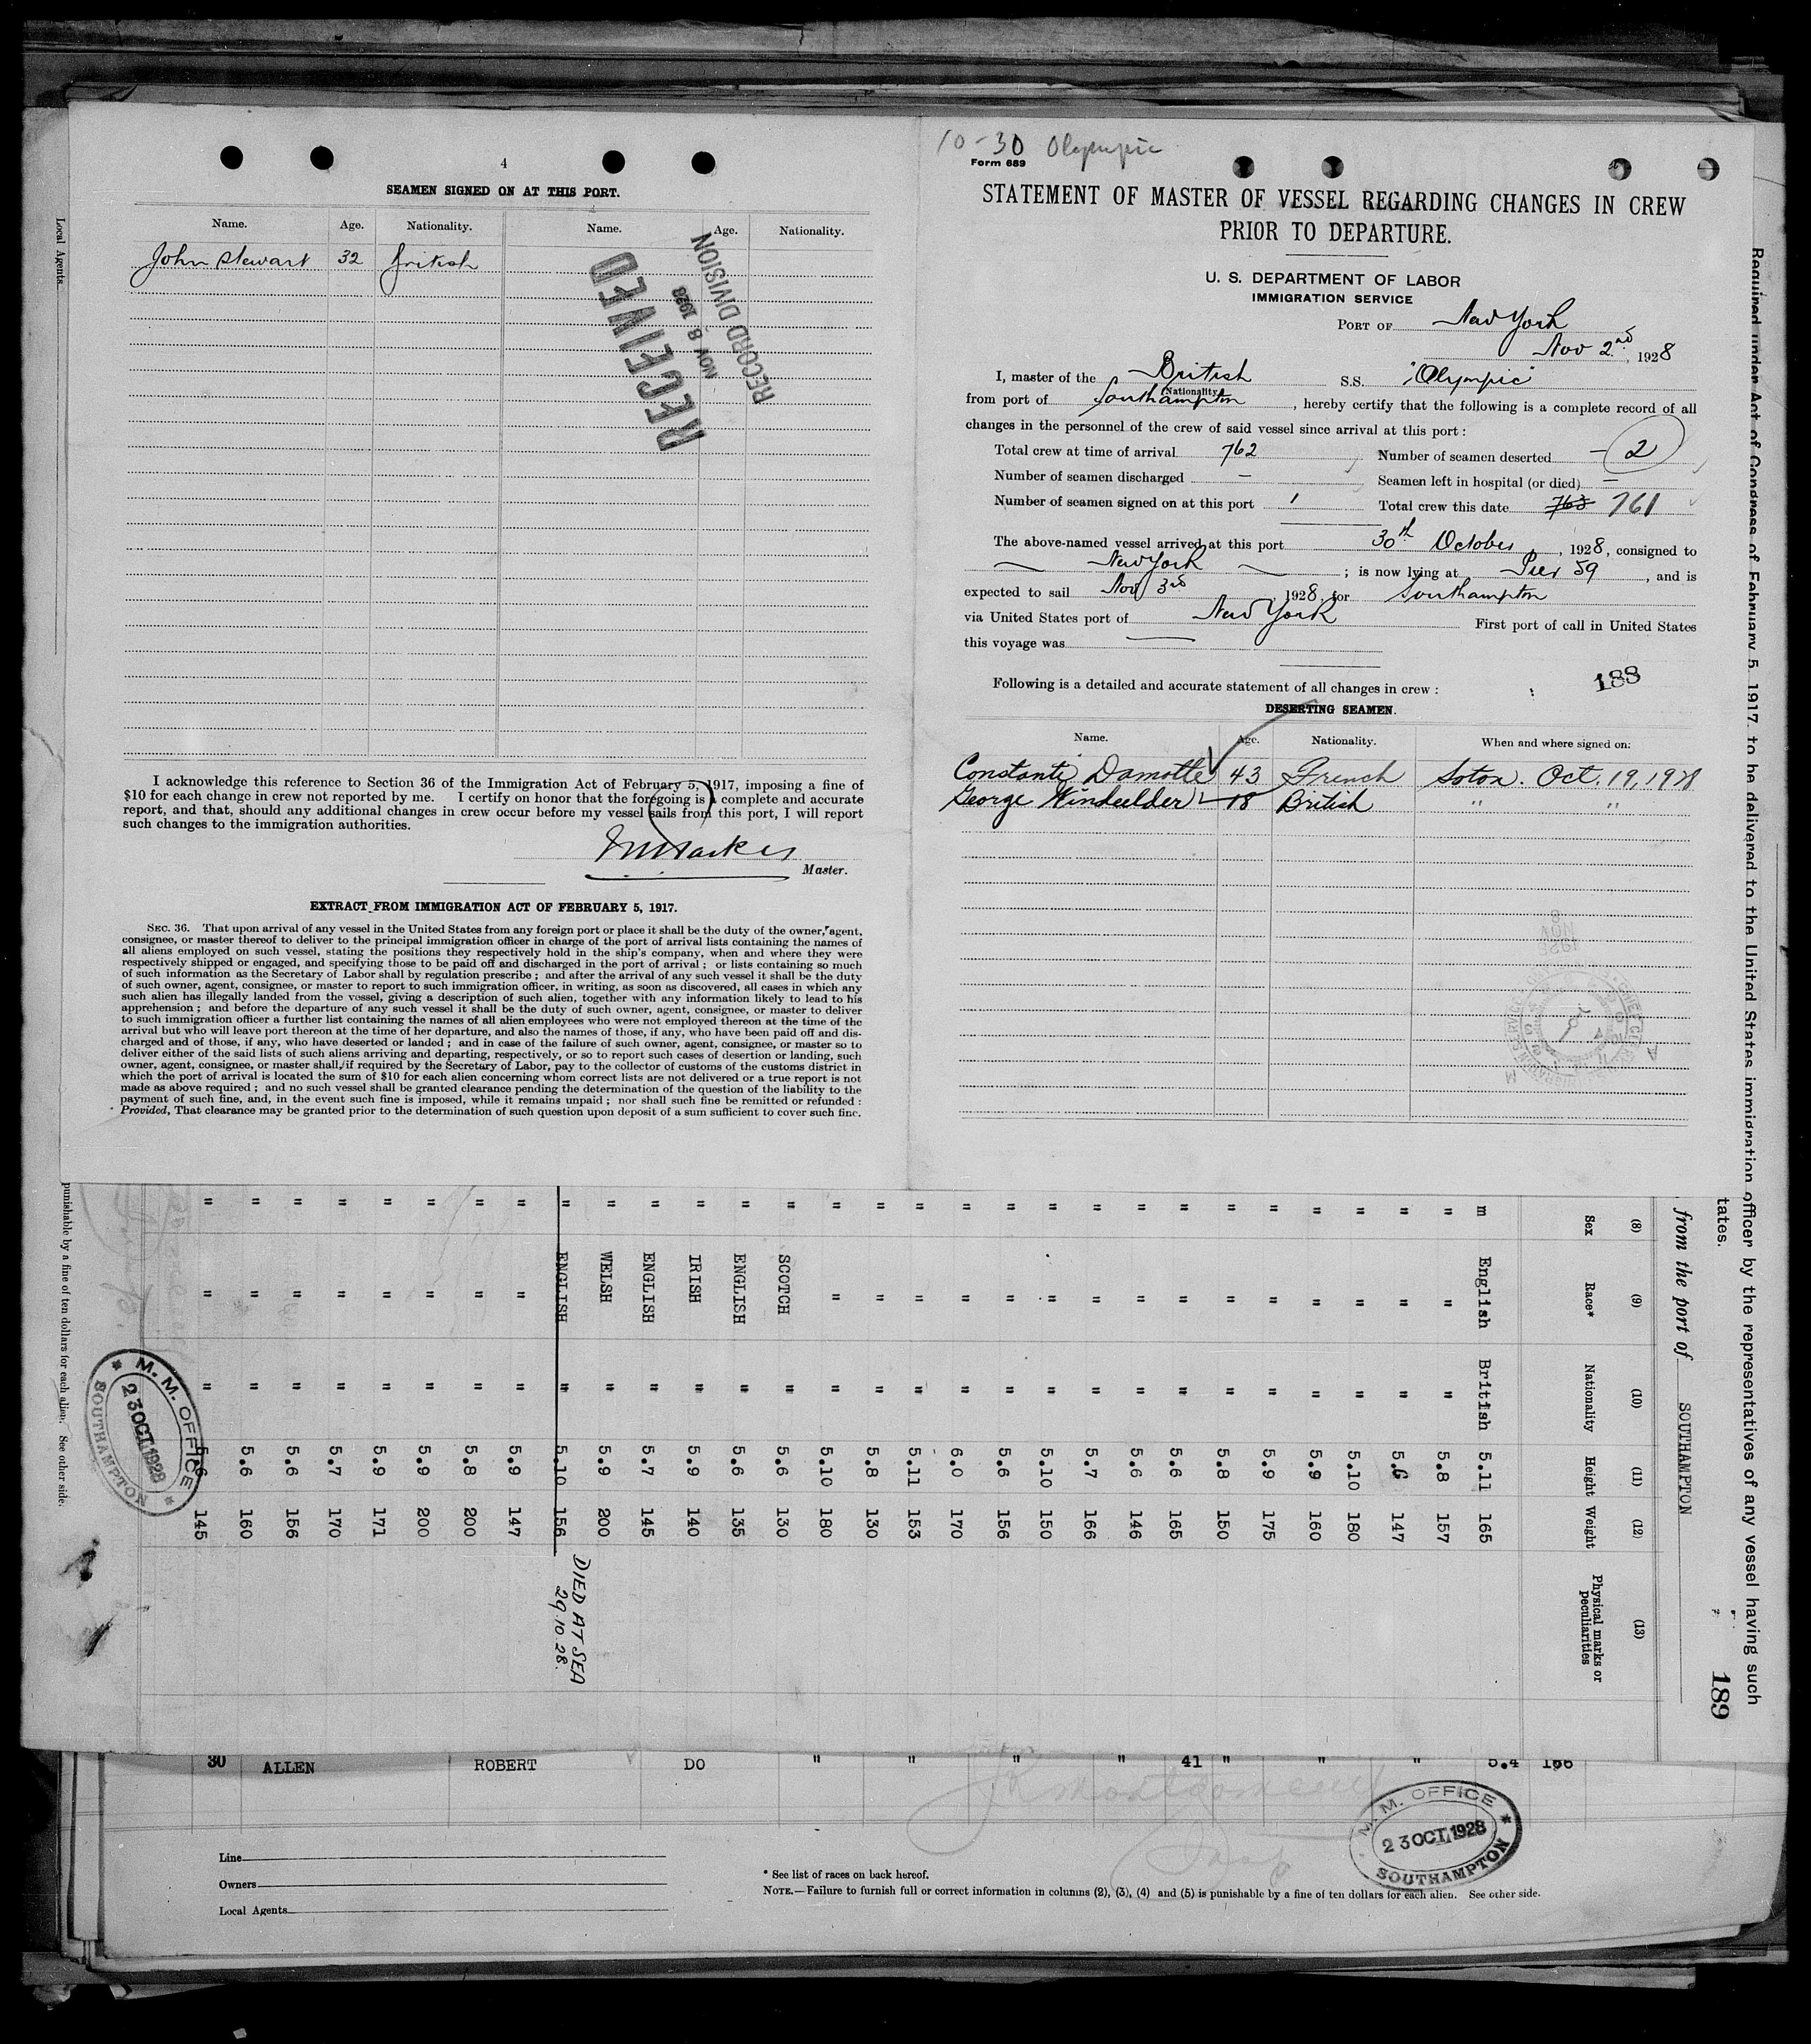 4
SEAMEN SIGNED ON AT THIS PORT.
Name. Age. Nationality. Name. Age. Nationality.
John Stewart 32 British
RECEIVED
NOV 8 1928
RECORD DIVISION
Local Agents
I acknowledge this reference to Section 36 of the Immigration Act of February 5, 1917, imposing a fine of
$10 for each change in crew not reported by me. I certify on honor that the foregoing is a complete and accurate
report, and that, should any additional changes in crew occur before my vessel sails from this port, I will report
such changes to the immigration authorities.
Master.
EXTRACT FROM IMMIGRATION ACT OF FEBRUARY 5, 1917.
SEC. 36. That upon arrival of any vessel in the United States from any foreign port or place it shall be the duty of the owner, agent,
consignee, or master thereof to deliver to the principal immigration officer in charge of the port of arrival lists containing the names of
all aliens employed on such vessel, stating the positions they respectively hold in the ship's company, when and where they were
respectively shipped or engaged, and specifying those to be paid off and discharged in the port of arrival; or lists containing so much
of such information as the Secretary of Labor shall by regulation prescribe; and after the arrival of any such vessel it shall be the duty
of such owner, agent, consignee, or master to report to such immigration officer, in writing, as soon as discovered, all cases in which any
such alien has illegally landed from the vessel, giving a description of such alien, together with any information likely to lead to his
apprehension; and before the departure of any such vessel it shall be the duty of such owner, agent, consignee, or master to deliver
to such immigration officer a further list containing the names of all alien employees who were not employed thereon at the time of the
arrival but who will leave port thereon at the time of her departure, and also the names of those, if any, who have been paid off and dis-
charged and of those, if any, who have deserted or landed; and in case of the failure of such owner, agent, consignee, or master so to
deliver either of the said lists of such aliens arriving and departing, respectively, or so to report such cases of desertion or landing, such
owner, agent, consignee, or master shall, if required by the Secretary of Labor, pay to the collector of customs of the customs district in
which the port of arrival is located the sum of $10 for each alien concerning whom correct lists are not delivered or a true report is not
made as above required; and no such vessel shall be granted clearance pending the determination of the question of the liability to the
payment of such fine, and, in the event such fine is imposed, while it remains unpaid; nor shall such fine be remitted or refunded:
Provided, That clearance may be granted prior to the determination of such question upon deposit of a sum sufficient to cover such fine.
10-30 Olympic
Form 689
STATEMENT OF MASTER OF VESSEL REGARDING CHANGES IN CREW
PRIOR TO DEPARTURE.
U. S. DEPARTMENT OF LABOR
IMMIGRATION SERVICE
PORT OF New York
Nov 2nd, 1928
I, master of the British S.S. "Olympic"
(Nationality)
from port of Southampton, hereby certify that the following is a complete record of all
changes in the personnel of the crew of said vessel since arrival at this port:
Total crew at time of arrival 762 Number of seamen deserted - 2
Number of seamen discharged - Seamen left in hospital (or died) -
Number of seamen signed on at this port 1 Total crew this date 763 761
The above-named vessel arrived at this port 30th October, 1928, consigned to
New York; is now lying at Pier 59, and is
expected to sail Nov 3rd 1928, for Southampton
via United States port of New York First port of call in United States
this voyage was
188
Following is a detailed and accurate statement of all changes in crew:
DESERTING SEAMEN.
Name. Age. Nationality. When and where signed on:
Damotte 43 French Soton. Oct. 19, 1928
George 18 British " "
Required under Act of Congress of February 5, 1917, to be delivered to the United States immigration officer by the representatives of any vessel having such
tates.
189
from the port of SOUTHAMPTON
(8) (9) (10) (11) (12) (13)
Sex Race* Nationality Height Weight Physical marks or peculiarities
m English British 5.11 165
" " " 5.8 157
" " " 5.6 147
" " " 5.10 180
" " " 5.9 160
" " " 5.9 175
" " " 5.8 150
" " " 5.6 165
" " " 5.6 146
" " " 5.7 166
" " " 5.10 150
" " " 5.6 156
" " " 6.0 170
" " " 5.11 153
" " " 5.8 130
" " " 5.10 180
" SCOTCH " 5.6 130
" ENGLISH " 5.6 135
" IRISH " 5.9 140
" ENGLISH " 5.7 145
" WELSH " 5.9 200
" ENGLISH " 5.10 156 DIED AT SEA 29.10.28.
" " " 5.9 147
" " " 5.8 200
" " " 5.9 200
" " " 5.9 171
" " " 5.7 170
" " " 5.6 156
" " " 5.6 160
" " " 5.6 145
M. M. OFFICE
23 OCT 1928
SOUTHAMPTON
punishable by a fine of ten dollars for each alien. See other side.
30 ALLEN ROBERT DO " " " " 41 " " " 5.4 156
M. M. OFFICE
23 OCT 1928
SOUTHAMPTON
Line
Owners
Local Agents
* See list of races on back hereof.
NOTE.—Failure to furnish full or correct information in columns (2), (3), (4) and (5) is punishable by a fine of ten dollars for each alien. See other side.